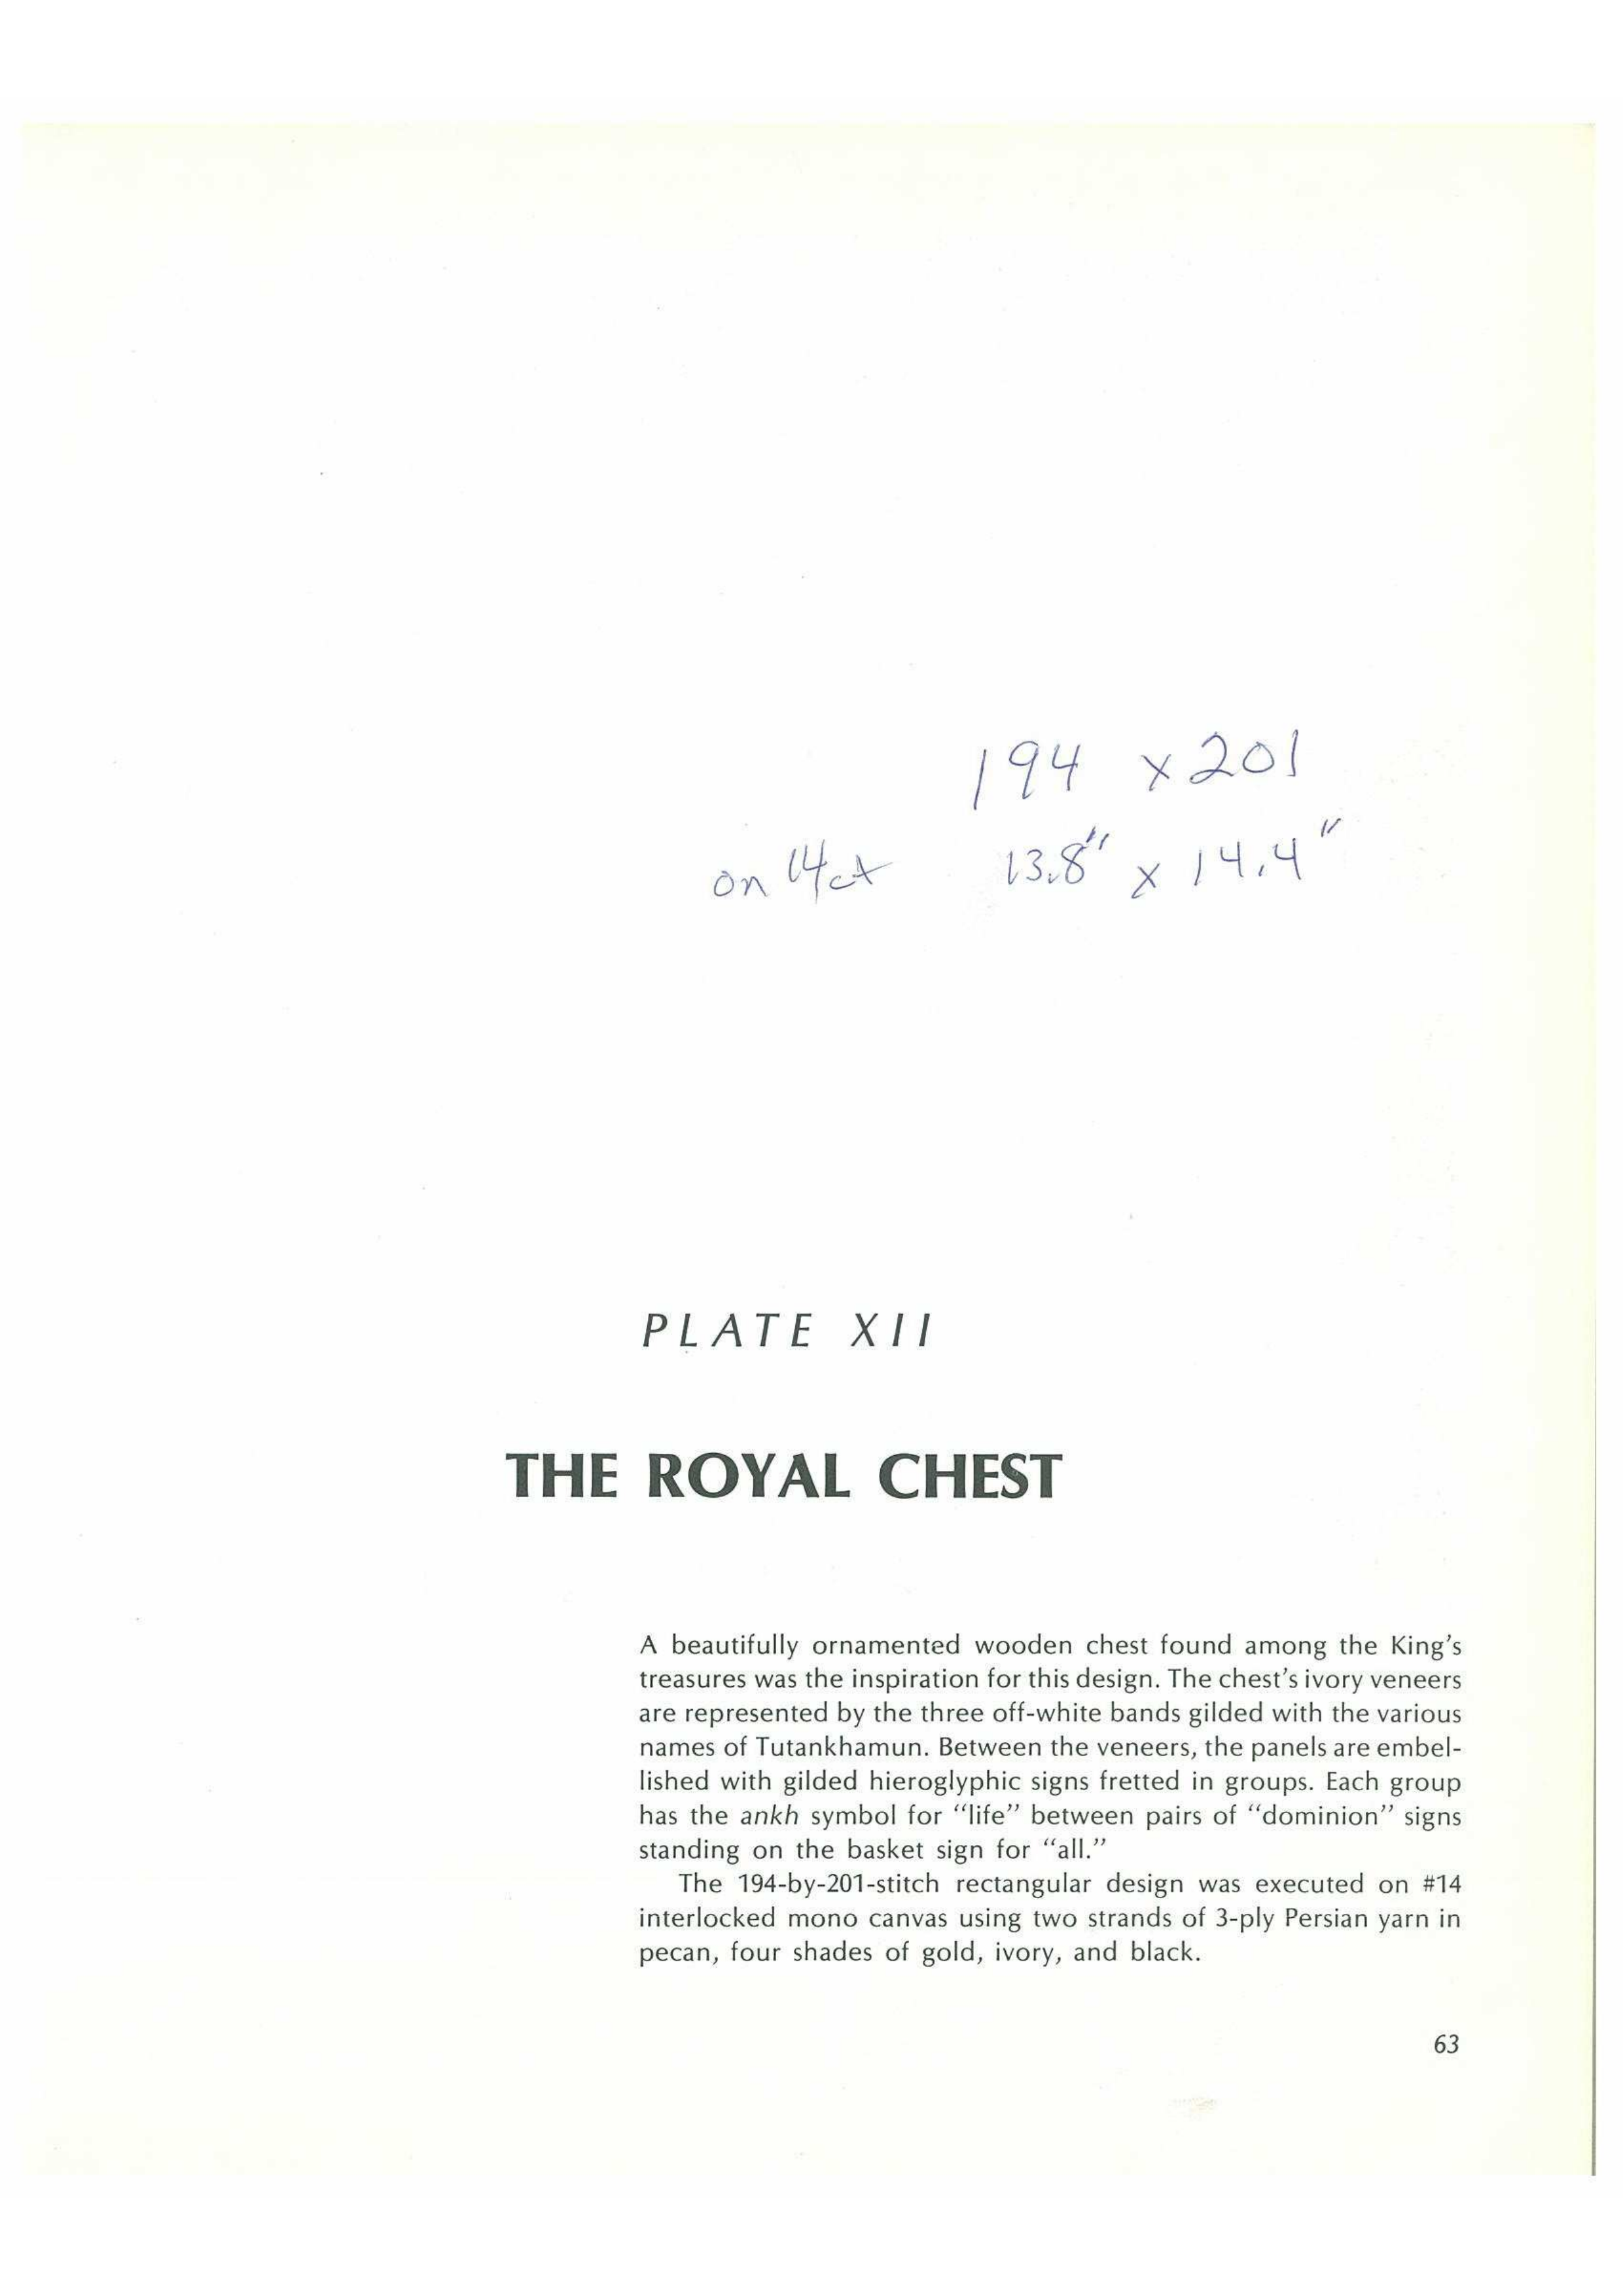 194 x 201
on 14ct 13.8" x 14.4"
PLATE XII
THE ROYAL CHEST
A beautifully ornamented wooden chest found among the King's
treasures was the inspiration for this design. The chest's ivory veneers
are represented by the three off-white bands gilded with the various
names of Tutankhamun. Between the veneers, the panels are embel-
lished with gilded hieroglyphic signs fretted in groups. Each group
has the ankh symbol for “life” between pairs of “dominion” signs
standing on the basket sign for “all.”
The 194-by-201-stitch rectangular design was executed on #14
interlocked mono canvas using two strands of 3-ply Persian yarn in
pecan, four shades of gold, ivory, and black.
63